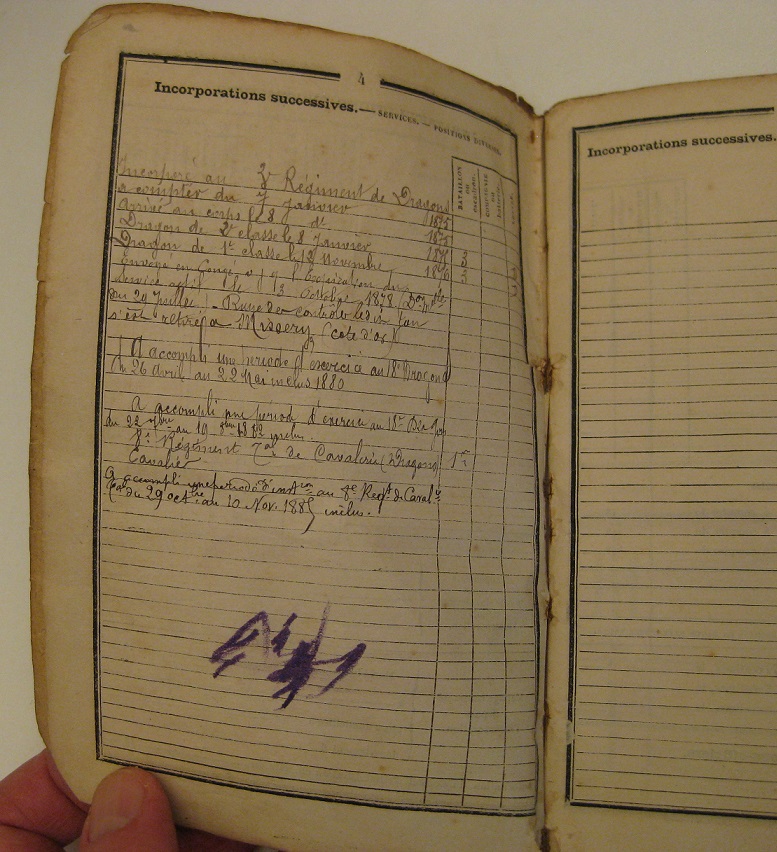 4
Incorporations successives. — SERVICES. — POSITIONS DIVERSES.
Incorporé au Régiment de Dragons
a compter du 7 Janvier 1875
Arrivé au corps le 8 dt 1875
Dragon de 2e classe le 8 Janvier 1875 3
Dragon de 1e classe le 12 Novembre 1876 3
Envoyé en Congé l'Expiration du
Service actif le 3 Octobre 1878
du 29 Juillet). Rayé des contrôles le dit jour
s'est retiré à Missery (Côte d'or)
A accompli une période d'exercice au 18e Dragons
du 26 Avril au 22 Mai inclus 1880
A accompli une période d'exercice au 18e
du 22 au 19 1882 inclus.
8e Régiment Tal de Cavalerie (Dragons) 1er
Cavalier
A accompli une période d'inston au 8e Regt de Cavalie
Tal du 29 octbre au 10 Nov. 1885 inclus.
Incorporations successives.